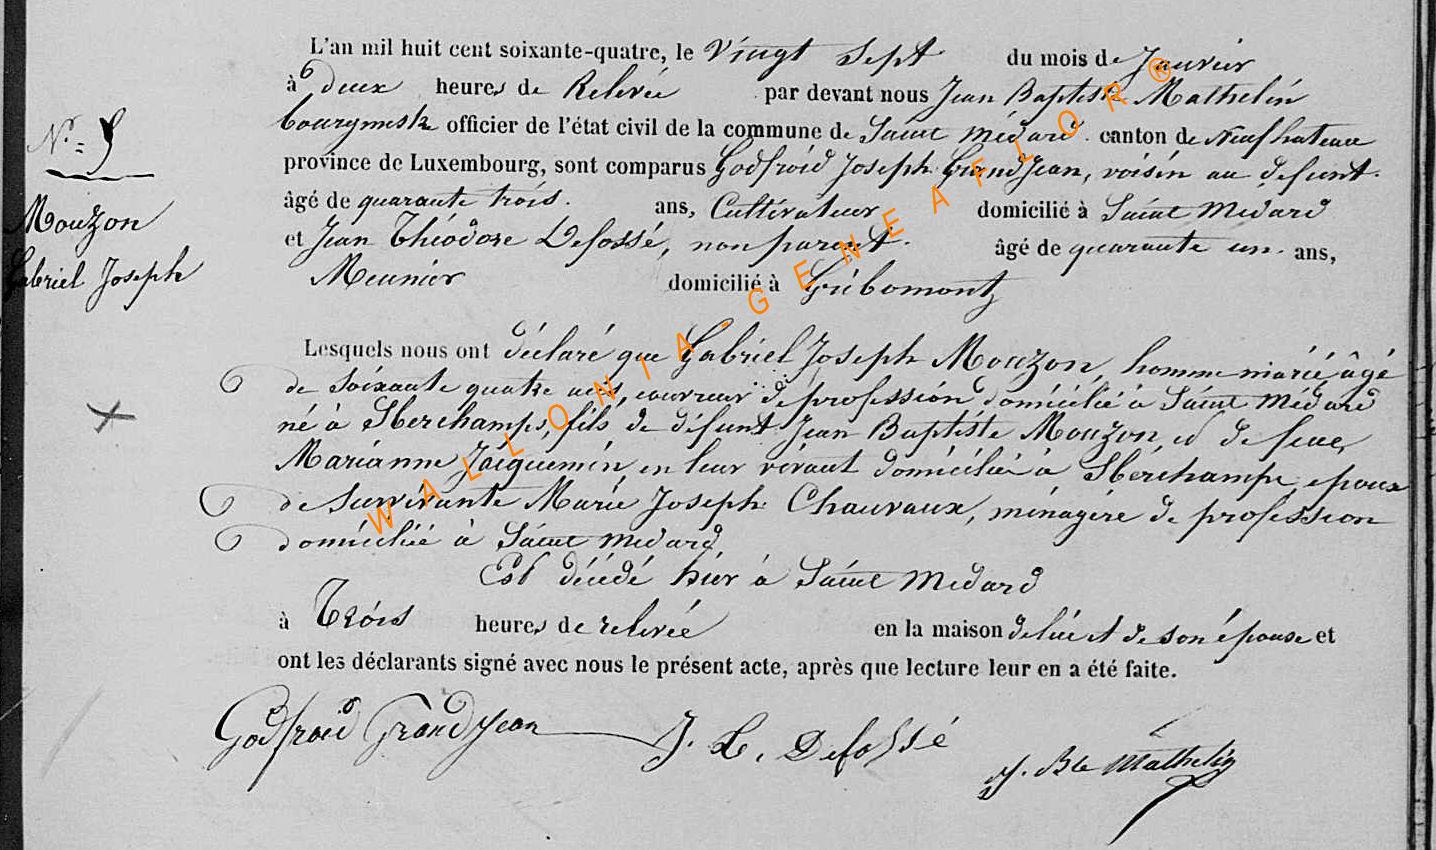 L'an mil huit cent soixante-quatre, le vingt sept du mois de Janvier
à deux heures de Relevée par devant nous Jean Baptiste Mathelin
bourgmestre officier de l'état civil de la commune de Saint Médard canton de Neufchateau
province de Luxembourg, sont comparus Godfroid Joseph GrandJean, voisin au défunt.
âgé de quarante trois. ans, Cultivateur domicilié à Saint Medard
et Jean Théodore Defossé, non parent. âgé de quarante un. ans,
Meunier domicilié à Gribomont
Lesquels nous ont déclaré que Gabriel Joseph Mouzon, homme marié âgé
de soixante quatre ans, couvreur de profession domicilié à Saint Médard
né à Herchamps, fils de défunt Jean Baptiste Mouzon et de feue,
Marianne Jacquemin en leur vivant domiciliés à Herchamps, epoux
de survivante Marie Joseph Chauvaux, ménagère de profession
domiciliée à Saint Medard
Est décédé hier à Saint Medard
à Trois heures de relevée en la maison de lui et de son épouse et
ont les déclarants signé avec nous le présent acte, après que lecture leur en a été faite.
N° = 5
Mouzon
Gabriel Joseph
Godfroid GrandJean J. Defossé J. Bte Mathelin
WALLONIA-GENEAFLOR®